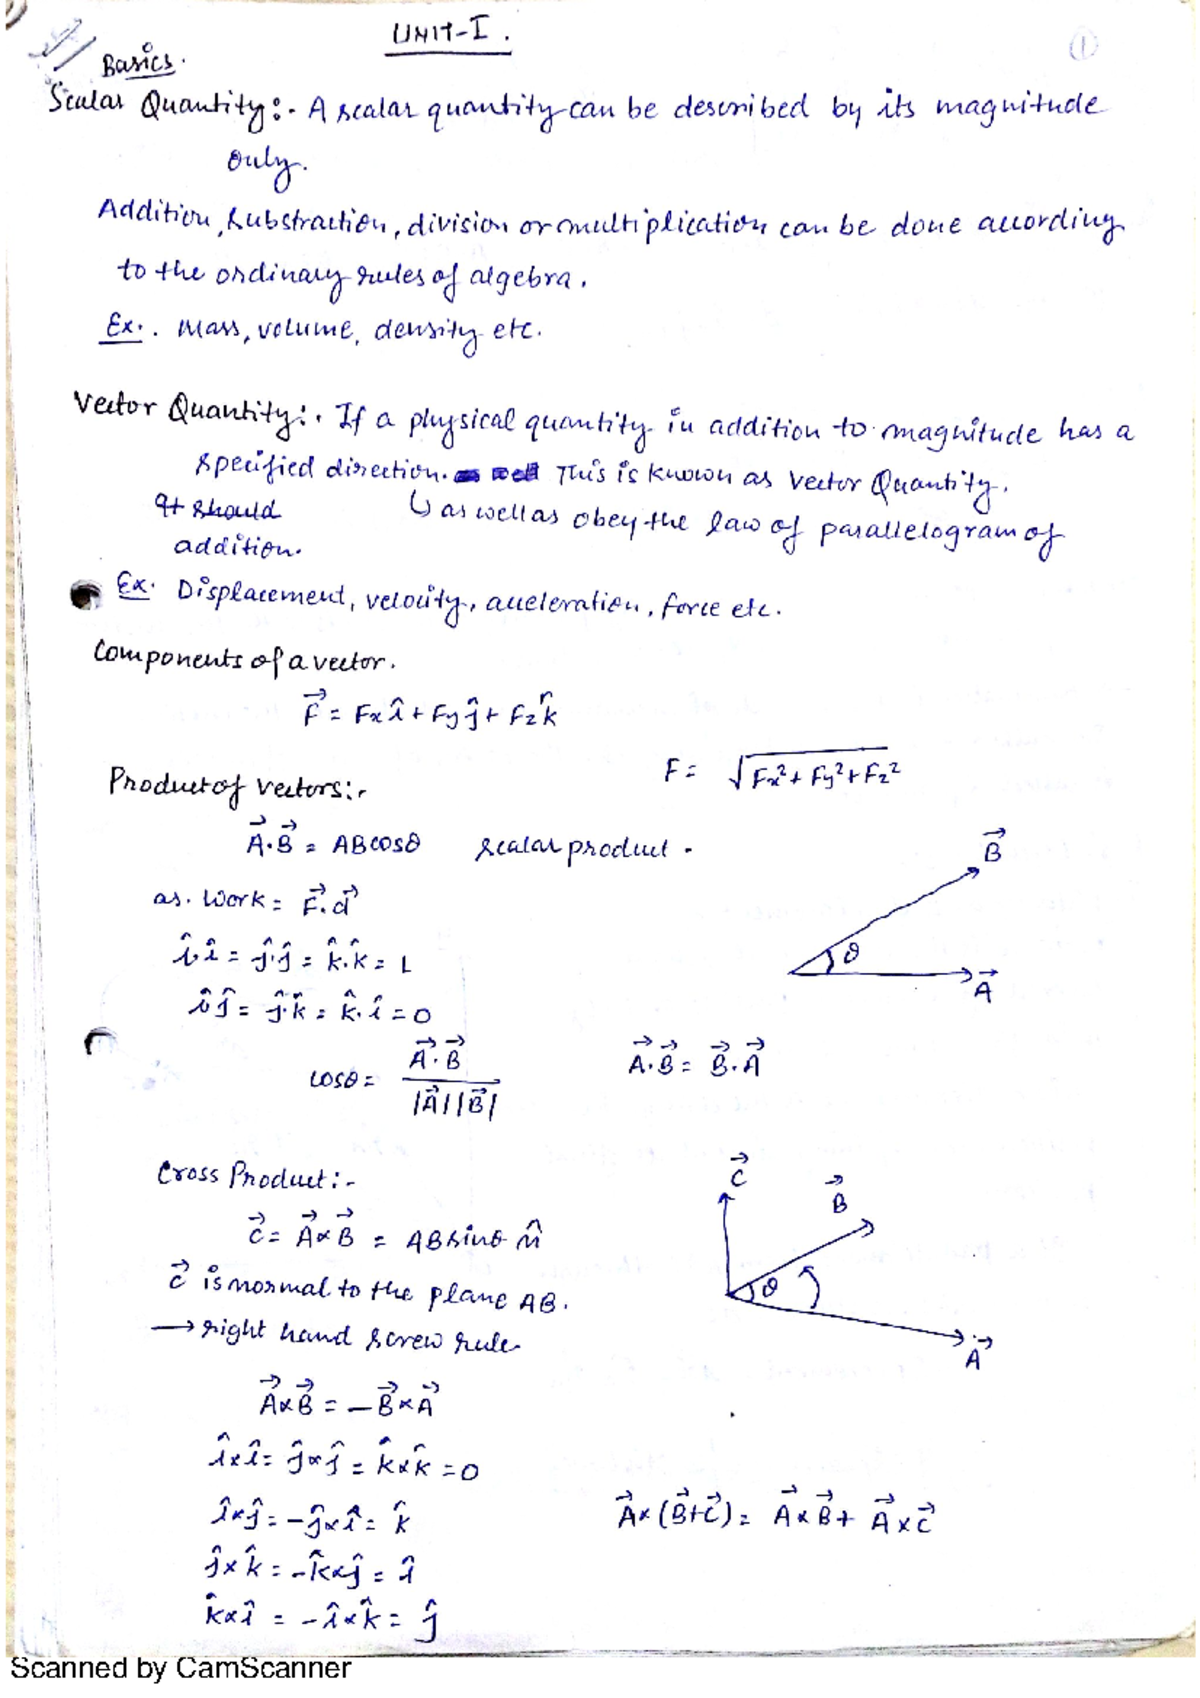 UNIT-I.
①
Basics.
Scalar Quantity:- A scalar quantity can be described by its magnitude
only.
Addition, substraction, division or multiplication can be done according
to the ordinary rules of algebra.
Ex:. Mass, volume, density etc.
Vector Quantity:. If a physical quantity in addition to magnitude has a
specified direction. This is known as Vector Quantity.
It should ↳ as well as obey the law of parallelogram of
addition.
Ex. Displacement, velocity, acceleration, force etc.
Components of a vector.
F⃗ = Fx î + Fy ĵ + Fz k̂
F = √(Fx² + Fy² + Fz²)
Product of Vectors:-
A⃗.B⃗ = ABcosθ scalar product.
B⃗
as. Work = F⃗.d⃗
î.î = ĵ.ĵ = k̂.k̂ = 1
θ
A⃗
î.ĵ = ĵ.k̂ = k̂.î = 0
cosθ = A⃗.B⃗ / |A⃗||B⃗|
A⃗.B⃗ = B⃗.A⃗
Cross Product:-
C⃗
B⃗
θ
A⃗
C⃗ = A⃗×B⃗ = ABsinθ n̂
C⃗ is normal to the plane AB.
→ right hand screw rule
A⃗×B⃗ = -B⃗×A⃗
î×î = ĵ×ĵ = k̂×k̂ = 0
î×ĵ = -ĵ×î = k̂
A⃗×(B⃗+C⃗) = A⃗×B⃗ + A⃗×C⃗
ĵ×k̂ = -k̂×ĵ = î
k̂×î = -î×k̂ = ĵ
Scanned by CamScanner